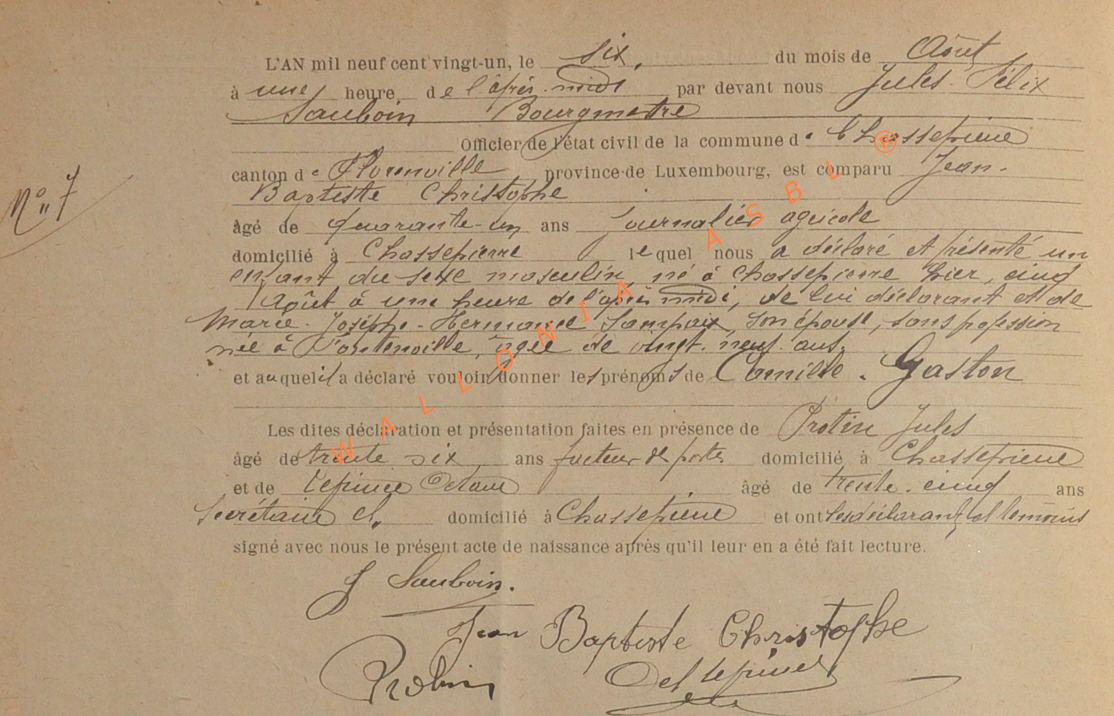 L'AN mil neuf cent vingt-un, le six, du mois de Août
à une heure de l'après-midi par devant nous Jules-Félix
Sauboin Bourgmestre
Officier de l'état civil de la commune de Chassepierre
canton de Florenville province de Luxembourg, est comparu Jean-
N° 7
Baptiste Christophe
âgé de quarante-un ans journalier agricole
domicilié à Chassepierre lequel nous a déclaré et présenté un
enfant du sexe masculin né à Chassepierre hier, cinq
Août à une heure de l'après midi, de lui déclarant et de
Marie-Josèphe-Hermance Lampaix, son épouse, sans profession
née à Fontenoille, âgée de vingt-neuf ans.
et auquel il a déclaré vouloir donner les prénoms de Camille-Gaston
Les dites déclaration et présentation faites en présence de Protin Jules
âgé de trente six ans facteur de postes domicilié à Chassepierre
et de Lepinée Octave âgé de trente-cinq ans
Secrétaire cl. domicilié à Chassepierre et ont les déclarant et témoins
signé avec nous le présent acte de naissance après qu'il leur en a été fait lecture.
J Sauboin.
Jean Baptiste Christophe
WALLONIA ASBL ®